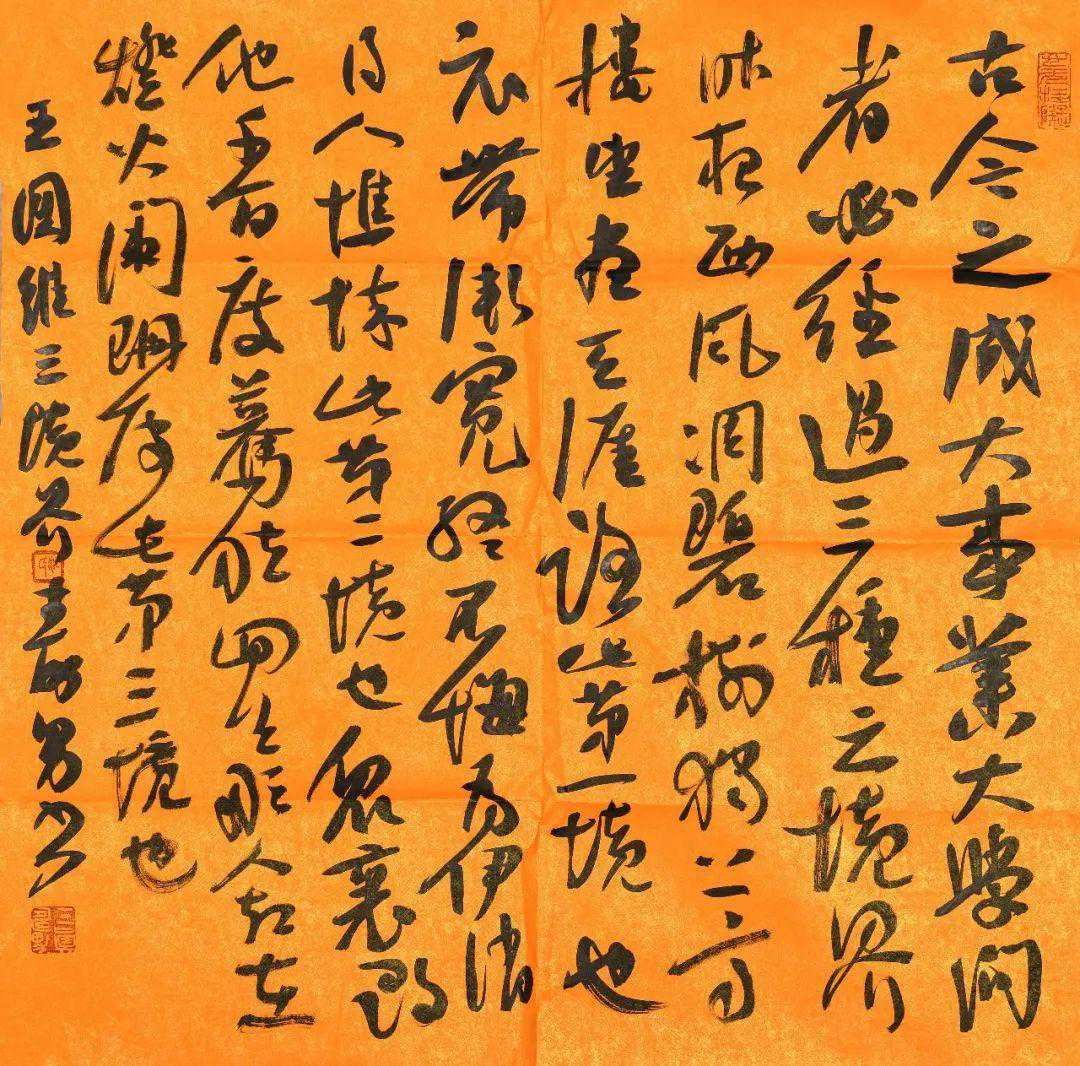 古今之成大事業大學問
者必經過三種之境界
昨夜西風凋碧樹獨上高
樓望盡天涯路此第一境也
衣帶漸寬終不悔為伊消
得人憔悴此第二境也眾裏尋
他千百度驀然回首那人却在
燈火闌珊處此第三境也
王國維三境界 書